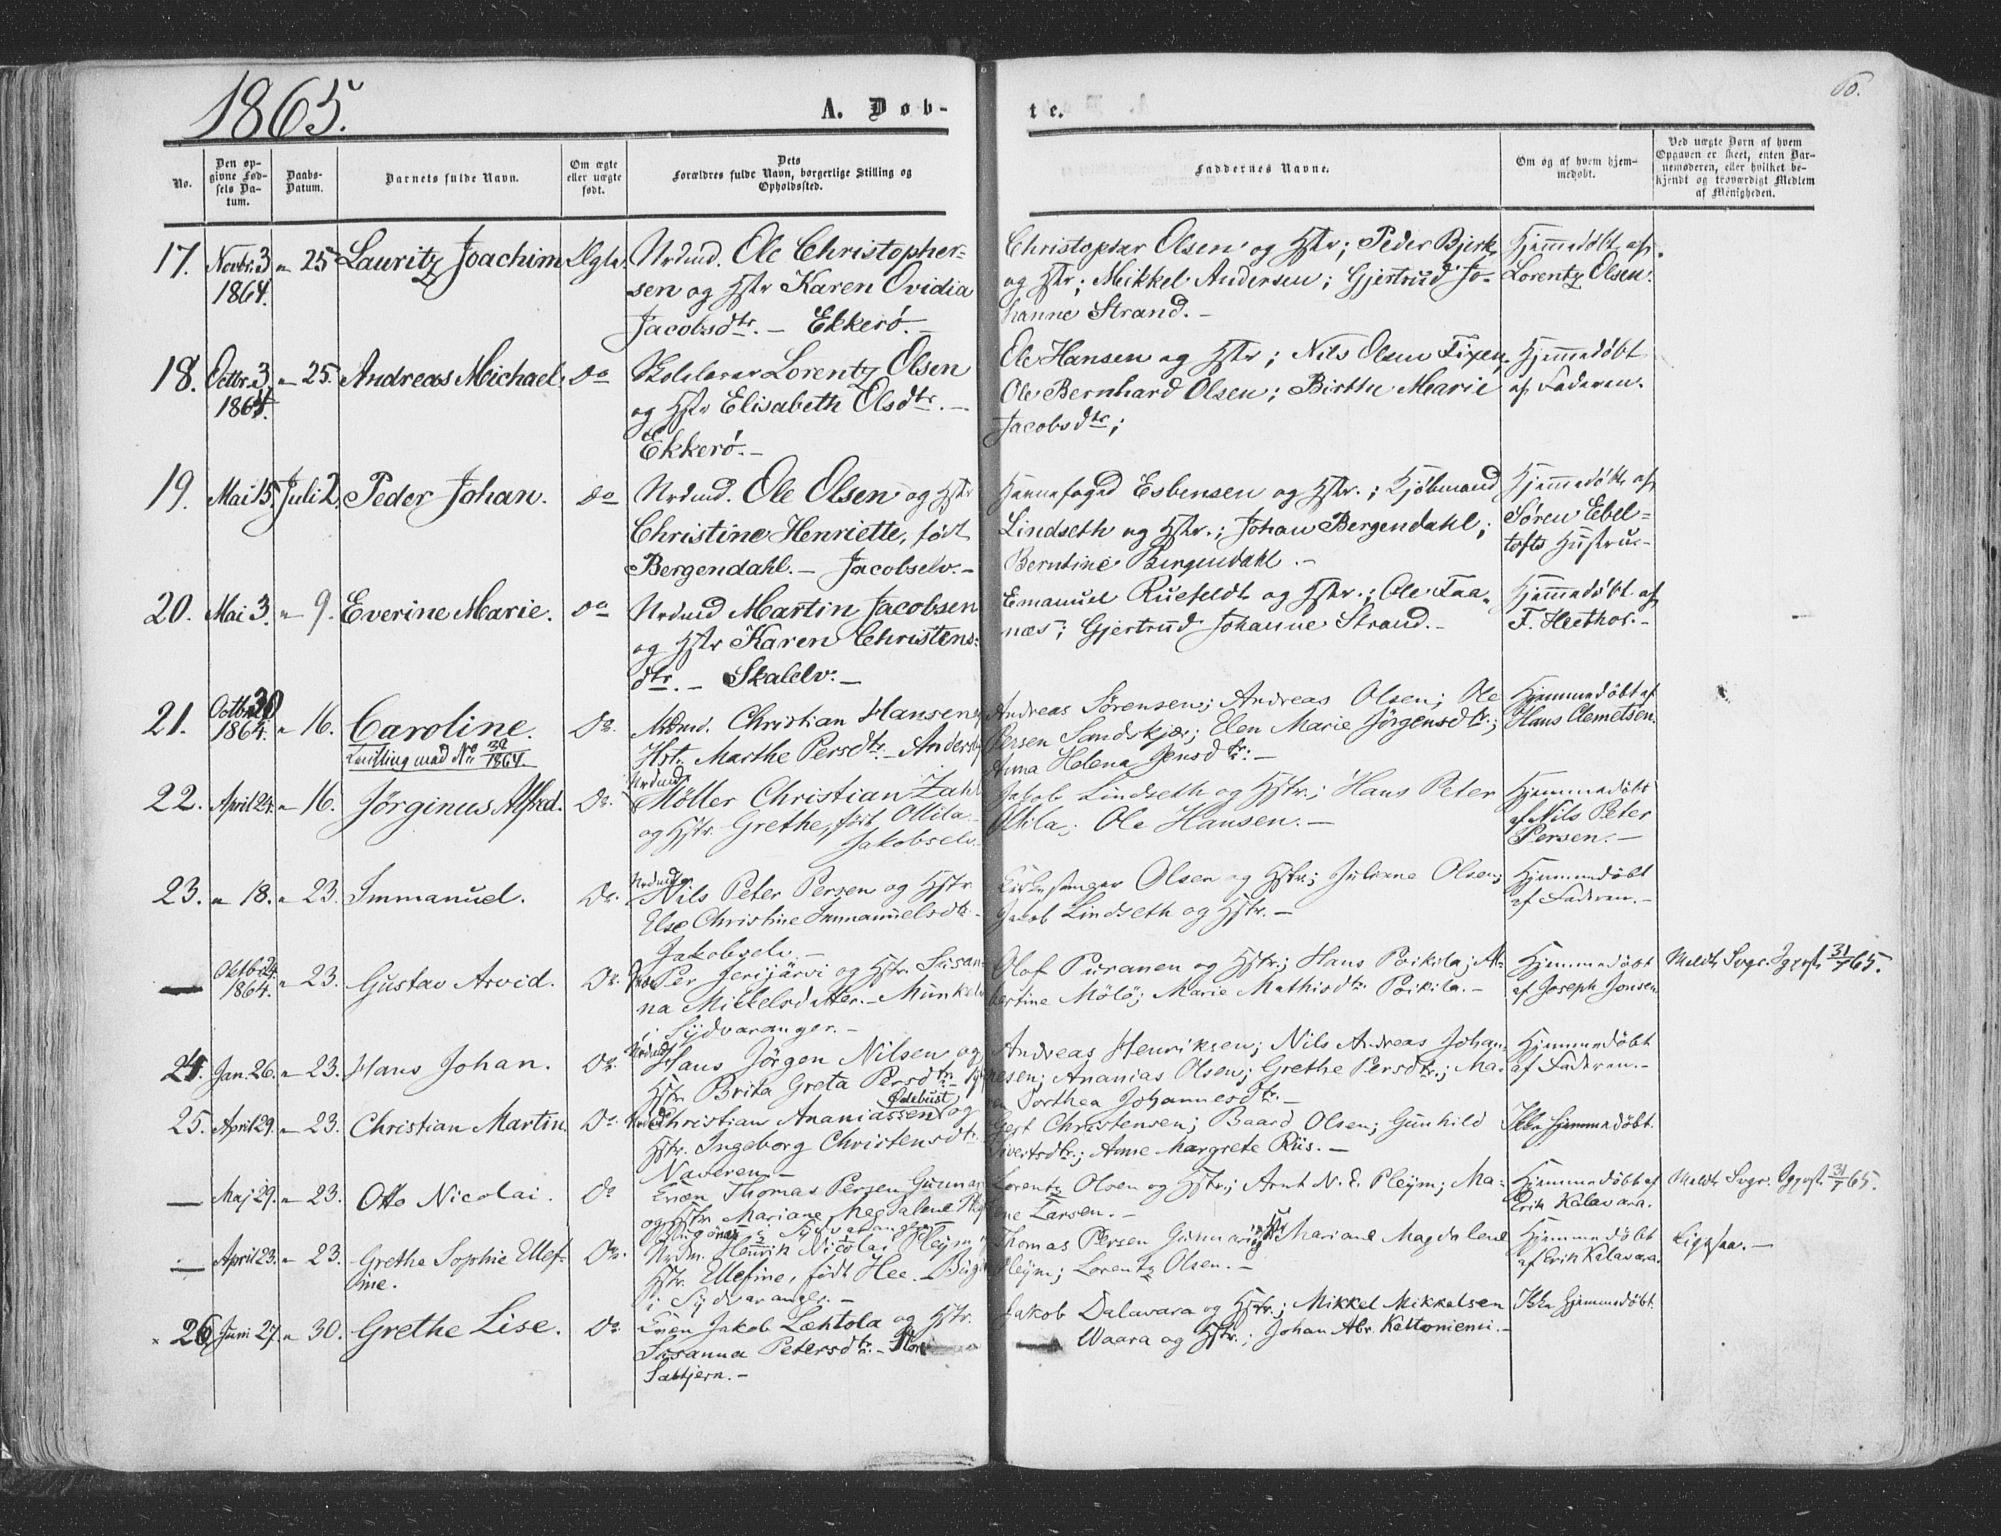 1865.
A. Døb-
te.
6.
No.
Den op-
givne Fød-
sels Da-
tum.
Daabs-
Datum.
Barnets fulde Navn.
Om ægte
eller uægte
født.
Dets
Forældres fulde Navn, borgerlige Stilling og
Opholdssted.
Faddernes Navne.
Om og af hvem hjem-
medøbt.
Ved uægte Børn af hvem
Opgaven er skeet, enten Bar-
nemoderen, eller hvilket be-
kjendt og troværdigt Medlem
af Menigheden.
17. Novbr. 3 1864. " 25 Lauritz Joachim Ægte.
Nrdmd. Ole Christopher-
sen og Hstr Karen Ovidia
Jacobsdtr. - Ekkerö. -
Christopher Olsen og Hstr; Peder Bjerk
og Hstr; Mikkel Andersen; Gjertrud Jo-
hanne Strand. -
Hjemmedöbt af
Lorentz Olsen.
18. Octbr. 3 1864. " 25. Andreas Michael. Do
Skolelærer Lorentz Olsen
og Hstr Elisabeth Olsdtr. -
Ekkerö. -
Ole Hansen og Hstr; Nils Olsen Tixen,
Ole Bernhard Olsen; Birthe Marie
Jacobsdtr;
Hjemmedöbt
af Faderen.
19. Mai 15. Juli 2. Peder Johan. Do
Nrdmd. Ole Olsen og Hstr
Christine Henriette, född
Bergendahl. - Jacobselv. -
Esbensen og Hstr.; Kjöbmand
Lindseth og Hstr.; Johan Bergendahl;
Berntine Bergendahl. -
Hjemmedöbt af
Søren Ebel-
tofts Hustru. -
20. Mai 3. " 9. Everine Marie. Do
Nrdmd Martin Jacobsen
og Hstr Karen Christens-
dtr. - Skalelv. -
Emanuel Ruefeldt og Hstr.; Ole Taa-
næs; Gjertrud Johanne Strand. -
Hjemmedöbt af
F. Heethor. -
21. Octbr. 30 1864. " 16. Caroline. Do.
Tvilling med No 39/1864.
Nrdmd. Christian Hansen,
Hst. Marthe Persdtr. Andersby
Andreas Sørensen; Andreas Olsen; Ole
Persen Sandskjær; Elen Marie Jørgensdtr.;
Anna Helena Jensdtr: -
Hjemmedöbt af
Hans Clemetsen.
22. April 24. " 16. Jørginus Alfred. Do.
Nrdmd
Möller Christian Zahl
og Hstr. Grethe, född Ollila -
Jakobselv.
Jakob Lindseth og Hstr.; Hans Peter
Ollila; Ole Hansen. -
Hjemmedöbt
af Nils Peter
Persen. -
23. " 18. " 23. Immanuel. Do.
Nrdmd
Nils Peter Persen og Hstr
Else Christine Immanuelsdtr. -
Jakobselv. -
Kirkesanger Olsen og Hstr; Juliane Olsen;
Jakob Lindseth og Hstr. -
Hjemmedöbt
af Faderen. -
— Oktbr. 24. 1864. " 23. Gustav Arvid. Do.
Per Jerijärvi og Hstr. Susan-
na Mickelsdatter. - Munkelv
i Sydvaranger. -
Olof Puranen og Hstr.; Hans Poikila; Al-
bertine Mölö; Marie Mathisdtr. Poikila. -
Hjemmedöbt
af Joseph Jonsen
Meldt Svgr. Sgprst. 31/7 65.
24. Jan. 26. " 23. Hans Johan. Do.
Nrdmd
Hans Jörgen Nilsen og
Hstr Brita Greta Persdtr.
Andreas Henriksen; Nils Andreas Johan-
nesen; Ananias Olsen; Grethe Persdtr.; Ma-
ren Dorthea Johannesdtr. -
Hjemmedöbt
af Faderen. -
25. April 29. " 23. Christian Martin. Do.
Golebust
Christian Ananiassen og
Hstr. Ingeborg Christensdtr.
Naveren. -
Gert Christensen; Baard Olsen; Gunhild
Sivertsdtr.; Anne Margrete Riis. -
Ikke hjemmedöbt.
— Maj 29. " 23. Otto Nicolai. Do
Kvæn Thomas Persen Gunnari
og Hstr Mariane Magdalene Pleym
Bugönæs i Sydvaranger -
Lorentz Olsen og Hstr.; Arnt N. E. Pleÿm; Ma-
rine Larsen. -
Hjemmedöbt af
Erik Kalavara.
Meldt Svgr. Sgprst. 31/7 65.
— April 23. " 23. Grethe Sophie Ellef-
ine. Do.
Nrdm. Henrik Nicolai Pleym og
Hstr. Ellefine, född Hee. Bug
i Sydvaranger. -
Thomas Persen Gunnari og Hstr Mariane Magdalene
Pleÿm; Lorentz Olsen. -
Hjemmedöbt
af Erik Kalavara.
Ligesaa. -
26. Juni 27. " 30. Grethe Lise. Do.
Kvæn Jakob Læhtola og Hstr.
Susanna Petersdtr. -
Sabjern. -
Jakob Dalavara og Hstr.; Mikkel Mikkelsen
Waara og Hstr.; Johan Abr. Keltoniemi. -
Ikke Hjemmedöbt.